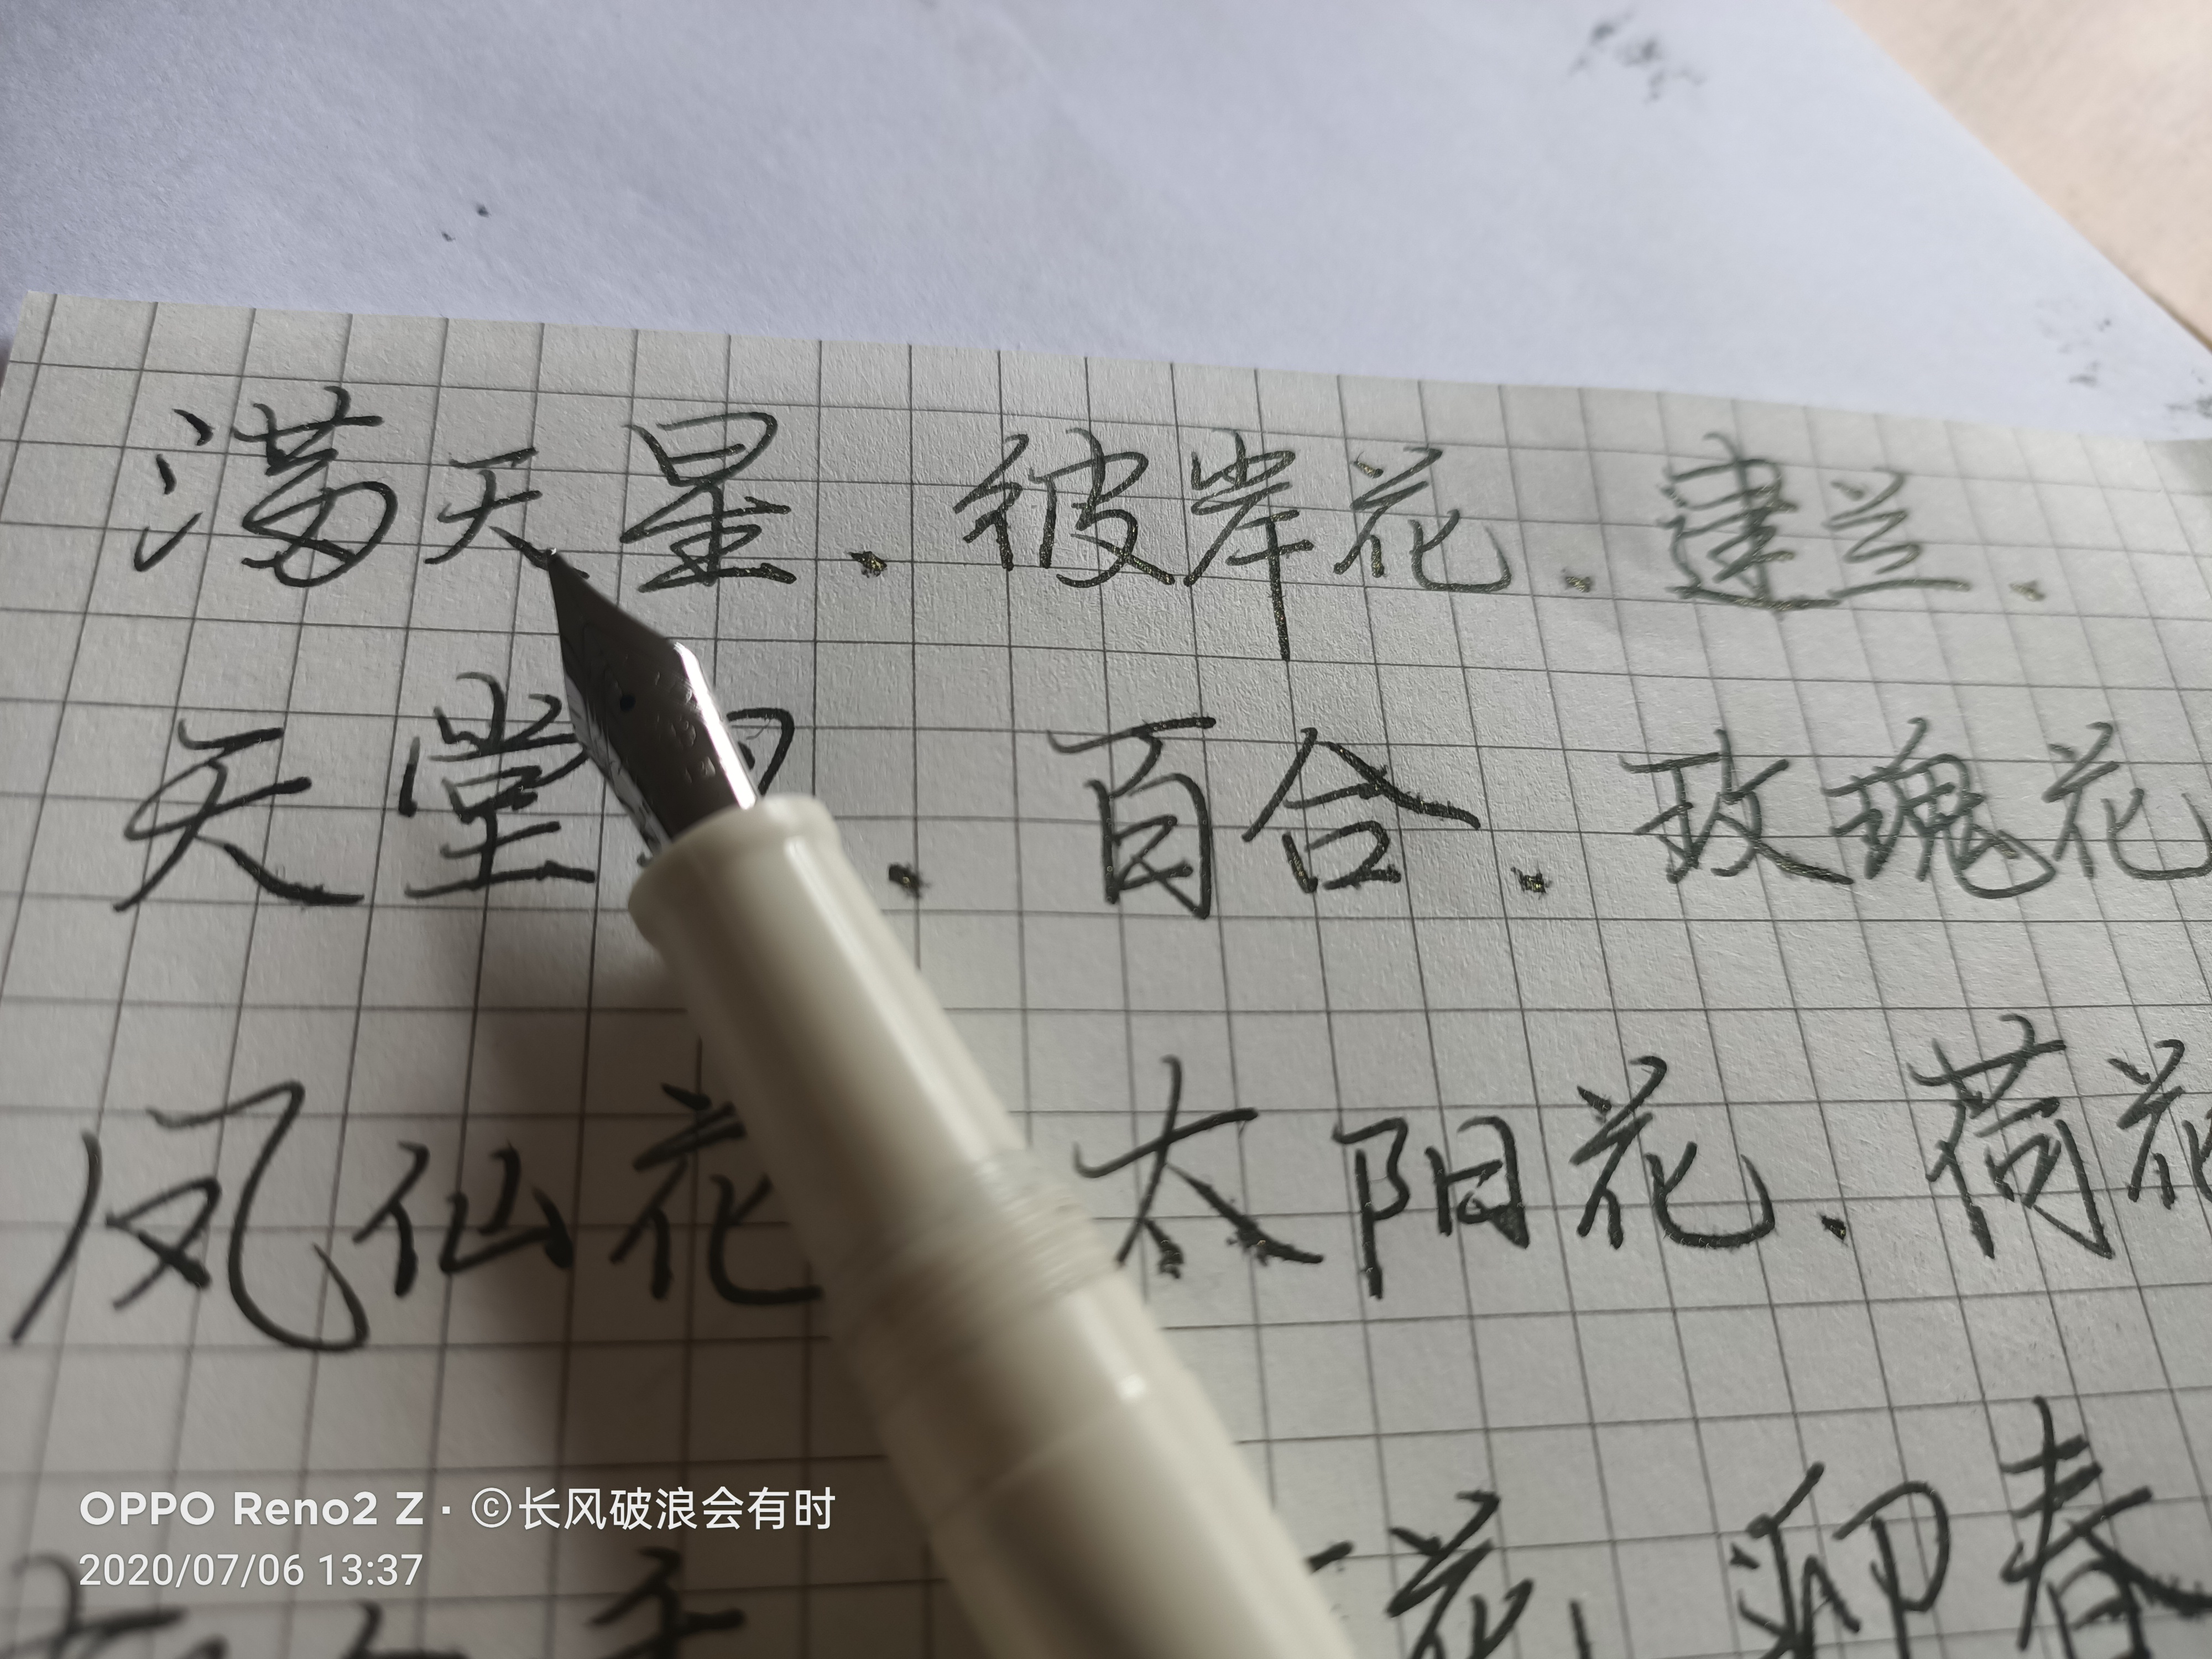 满天星.彼岸花.建兰.
天堂.百合.玫瑰花
凤仙花 太阳花.荷花
花 迎春
OPPO Reno2 Z · ©长风破浪会有时
2020/07/06 13:37